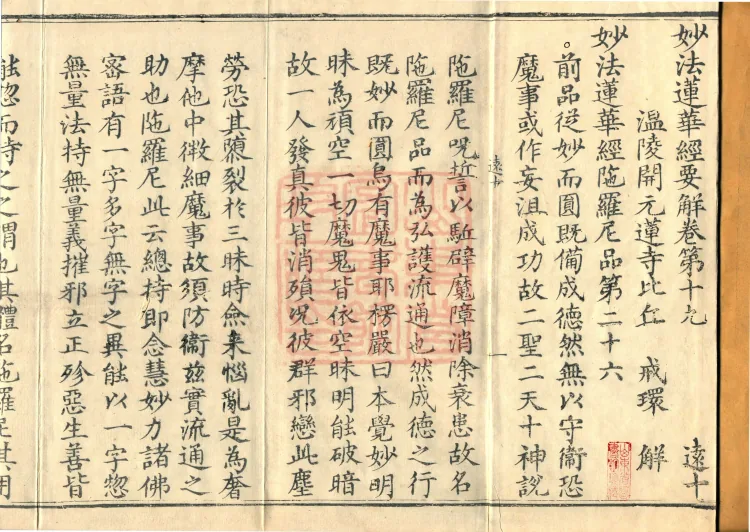 妙法蓮華經要解卷第十九 遠十
溫陵開元蓮寺比丘 戒環 解
妙法蓮華經陁羅尼品第二十六
。前品從妙而圓既備成德然無以守衞恐
魔事或作妄沮成功故二聖二天十神說
遠十 一
陁羅尼呪誓以駈辟魔障消除衰患故名
陁羅尼品而為弘護流通也然成德之行
既妙而圓烏有魔事耶楞嚴曰本覺妙明
昧為頑空一切魔鬼皆依空昧明能破暗
故一人發真彼皆消殞况彼群邪戀此塵
勞恐其隳裂於三昧時僉来惱亂是為奢
摩他中微細魔事故須防衞玆實流通之
助也陁羅尼此云總持即念慧妙力諸佛
密語有一字多字無字之異能以一字惣
無量法持無量義摧邪立正殄惡生善皆
能惣而持之之謂也其體名陁羅尼其用